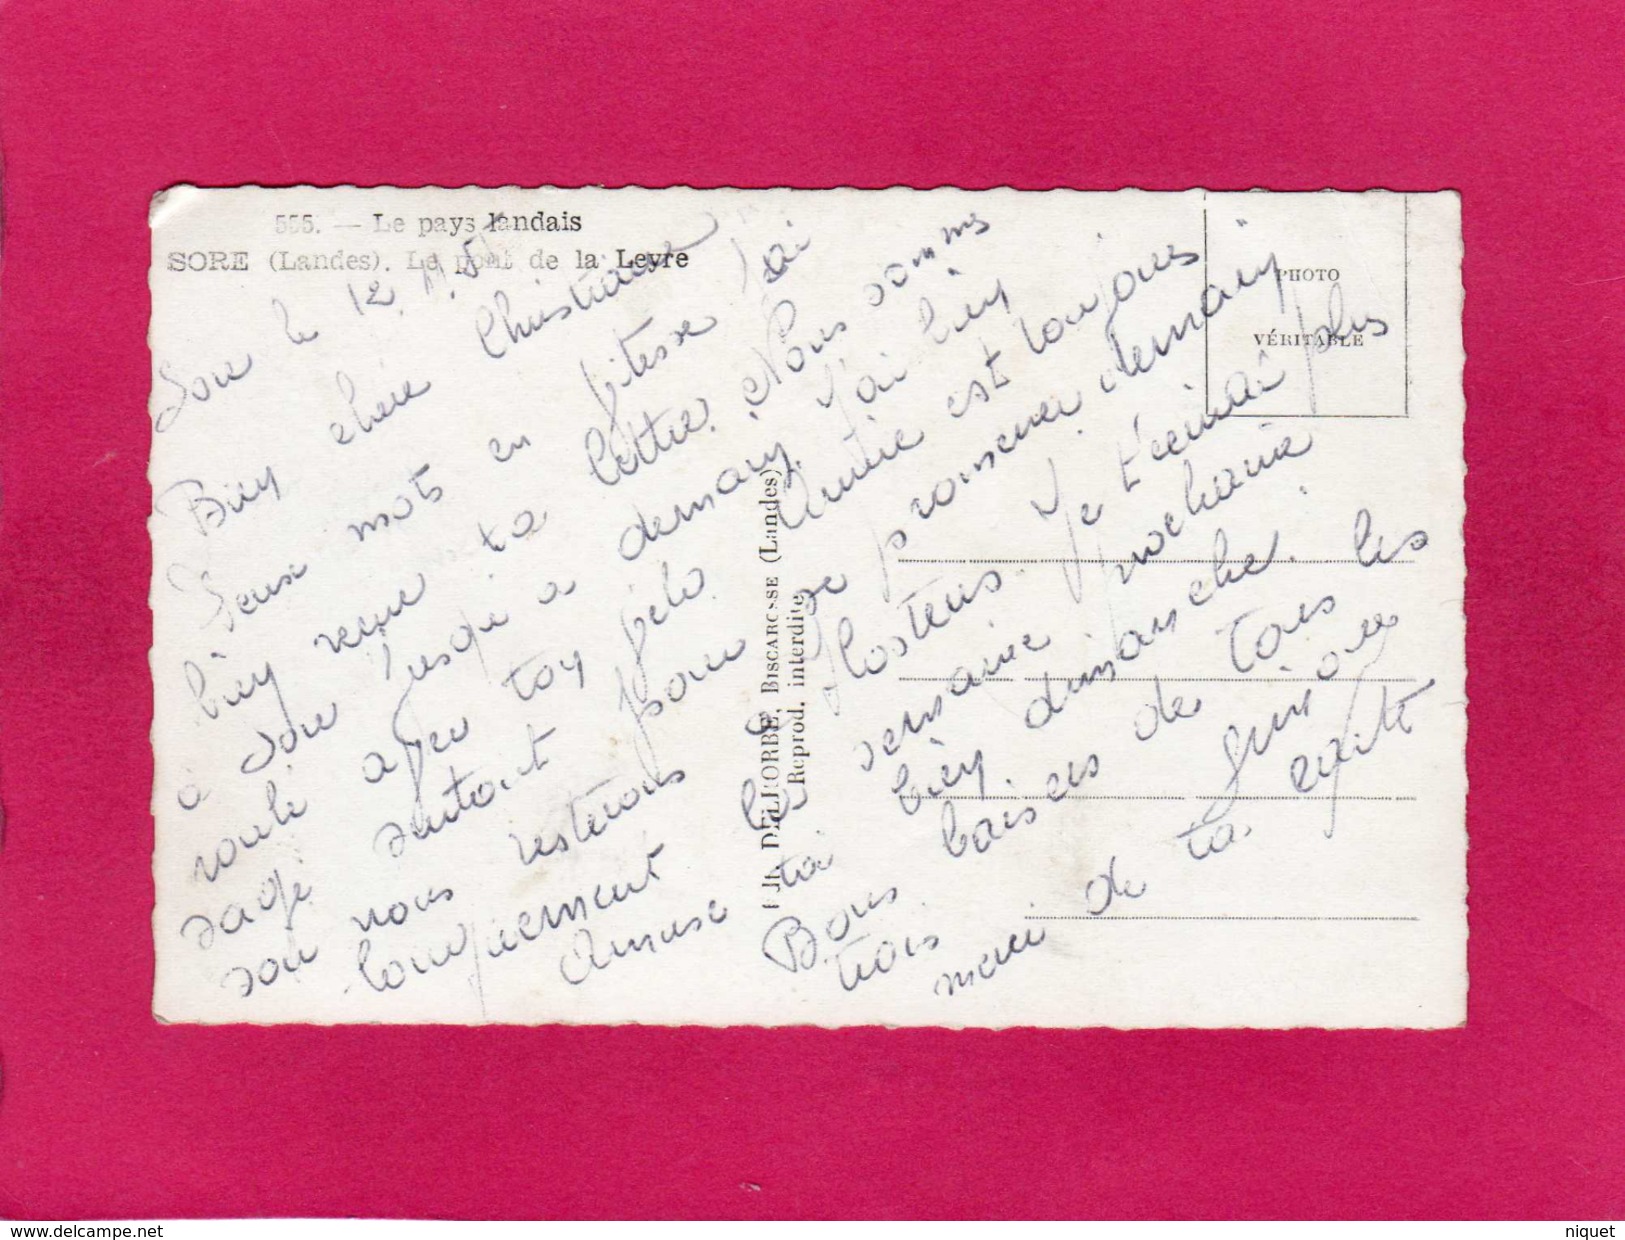 555. — Le pays landais
SORE (Landes). Le pont de la Leyre
PHOTO
VÉRITABLE
DELBORBE, BISCAROSSE (Landes)
Reprod. interdite
Sore le 12
Bien chère Christiane
Deux mots en vitesse j'ai
bien reçue ta lettre. Nous sommes
à Sore jusqu'à demain, j'ai bien
roulé avec ton vélo. Annie est toujours
sage surtout pour se promener demain
soir nous resterons à Hosteus. Je t'écrirai plus
longuement la semaine prochaine
Amuse toi bien dimanche.
Bons baisers de tous les
trois
merci de ta carte
delcampe.net
niquet